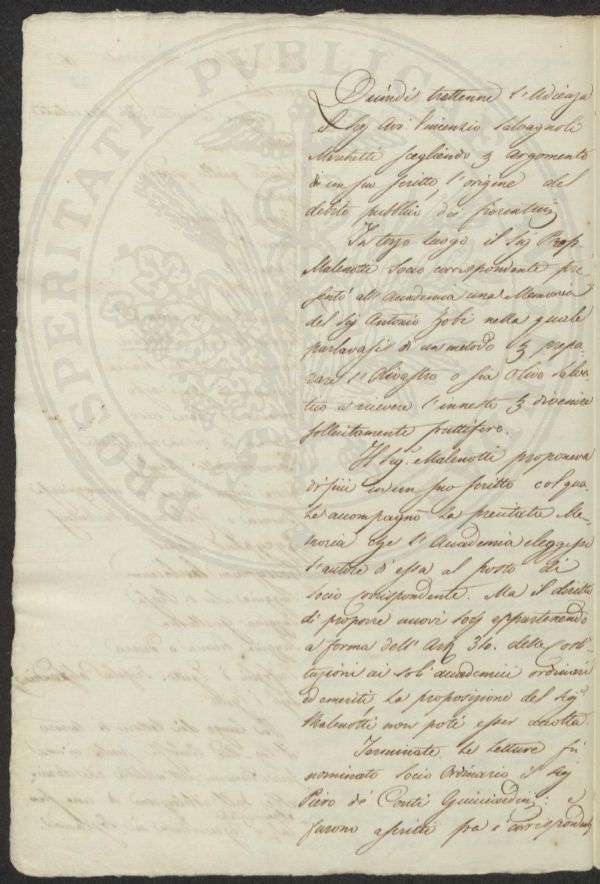 PROSPERITATI PUBLICAE
Quindi trattenne l'Adienza
il Sig Avv. Vincenzio Salvagnoli
Marchetti scegliendo per argomento
di un suo scritto, l'origine del
debito pubblico dei fiorentini
In terzo luogo il Sig Prof.
Malenotti Socio corrispondente pre
sentò all'Accademia una Memoria
del Sig Antonio Zobi nella quale
parlavasi di un metodo per prepa
rare l'Olivastro o sia Olivo salva
tico a ricevere l'innesto per divenire
sollecitamente fruttifero.
Il Sig. Malenotti proponeva
di più in un suo scritto col qua
le accompagnò la presentata Me-
moria che l'Accademia eleggesse
l'autore di essa al posto di
socio corrispondente. Ma il diritto
di proporre nuovi Socj appartenendo
a forma dell'Art. delle Costi-
tuzioni ai soli accademici ordinari
ed emeriti la proposizione del Sig.
Malenotti non poté esser accolta.
Terminate le letture fu
nominato Socio Ordinario il Sig
Piero de' Conti Guicciardini: e
furono ascritti fra i corrispondenti